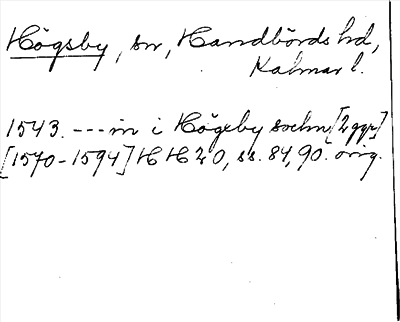 Högsby, sn, Handbörds hd,
Kalmar l.
1543. --- in i Högsby sochn [2 ggr]
[1570-1594] HH 20, ss. 84, 90. orig.